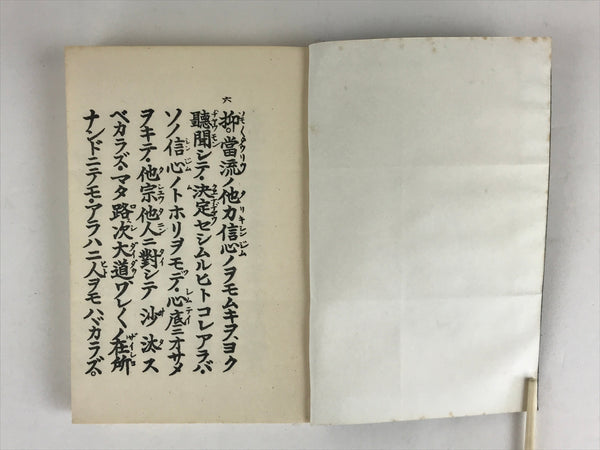 六
抑。當流ノ他力信心ノヲモムキヲ、ヨク
聽聞シテ、決定セシムルヒトコレアラバ、
ソノ信心ノトホリヲモテ、心底ニオサメ
ヲキテ、他宗他人ニ對シテ沙汰ス
ベカラズ。マタ路次大道ワレ〳〵ノ在所
ナンドニテモ、アラハニ人ヲモハバカラズ。